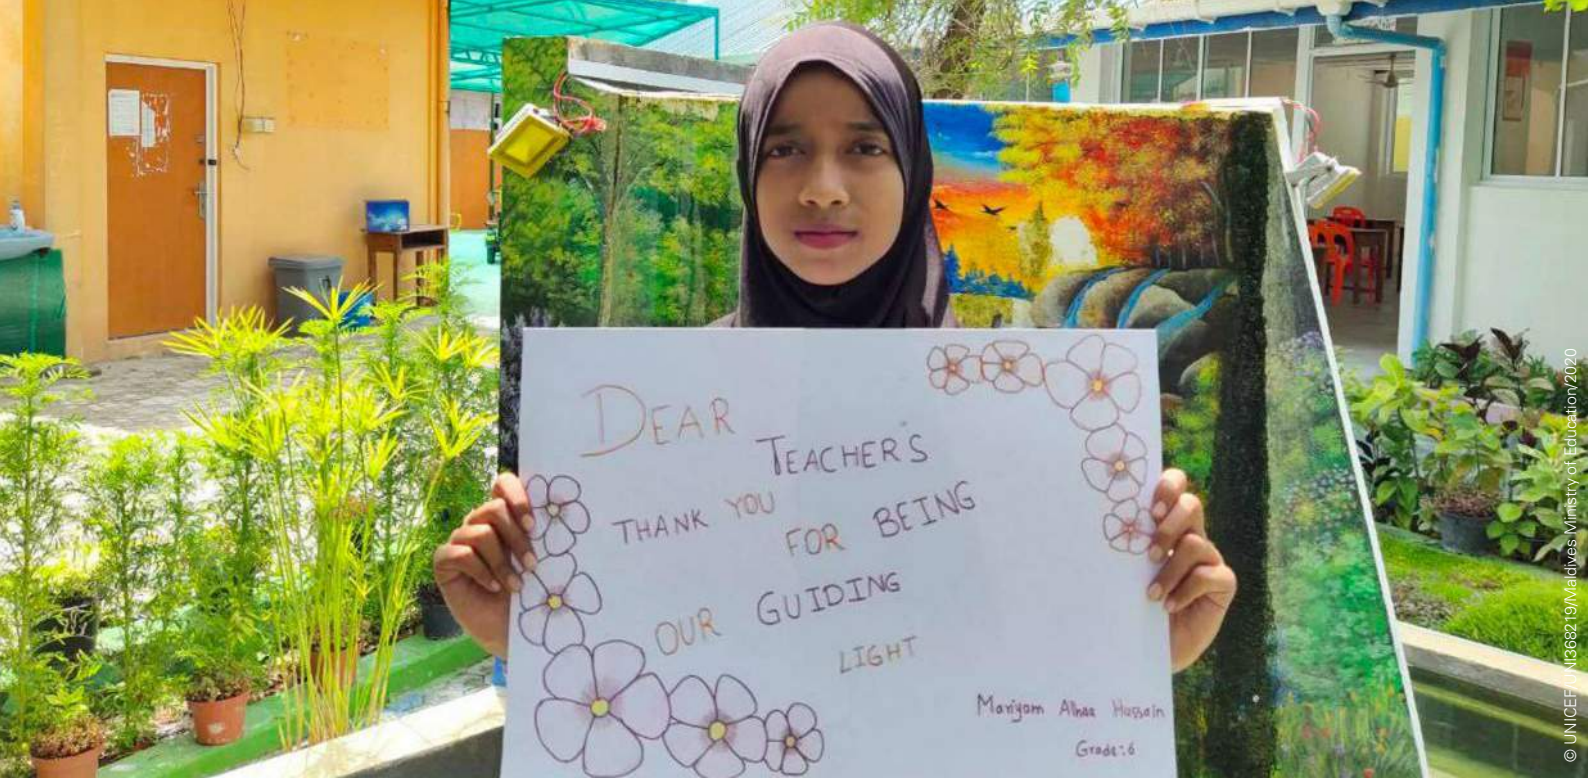 DEAR
TEACHER'S
THANK YOU
FOR BEING
OUR GUIDING
LIGHT
Mariyam Alhaa Hussain
Grade:6
© UNICEF/UNI368219/Maldives Ministry of Education/2020